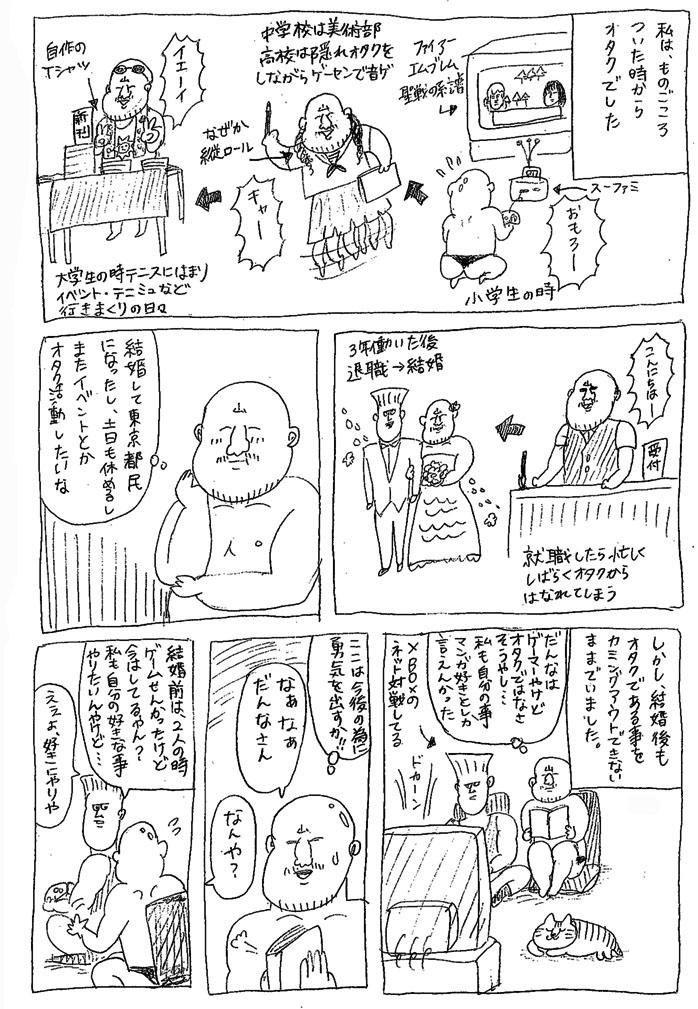 私は、ものごころ
ついた時から
オタクでした
ファイアー
エムブレム
聖戦の系譜
スーファミ
おもろー
小学生の時
中学校は美術部
高校は隠れオタクを
しながらゲーセンで音ゲ
なぜか
縦ロール
キャー
イエーイ
自作の
Tシャツ
新刊
大学生の時テニスにはまり
イベント・テニミュなど
行きまくりの日々
こんにちはー
受付
就職したら忙しく
しばらくオタクから
はなれてしまう
3年働いた後
退職→結婚
結婚して東京都民
になったし、土日も休めるし
またイベントとか
オタク活動したいな
しかし、結婚後も
オタクである事を
カミングアウトできない
ままでいました。
だんなは
ゲーマーやけど
オタクではなさ
そうやし…
私も自分の事
マンガ好きとしか
言えんかった
XBOXの
ネット対戦してる
ドカーン
ここは今後の為に
勇気を出すか!!
なぁなぁ
だんなさん
なんや?
結婚前は、2人の時
ゲームせんかったけど
今はしてるやん?
私も自分の好きな事
やりたいんやけど…
ええよ、好きにやりや